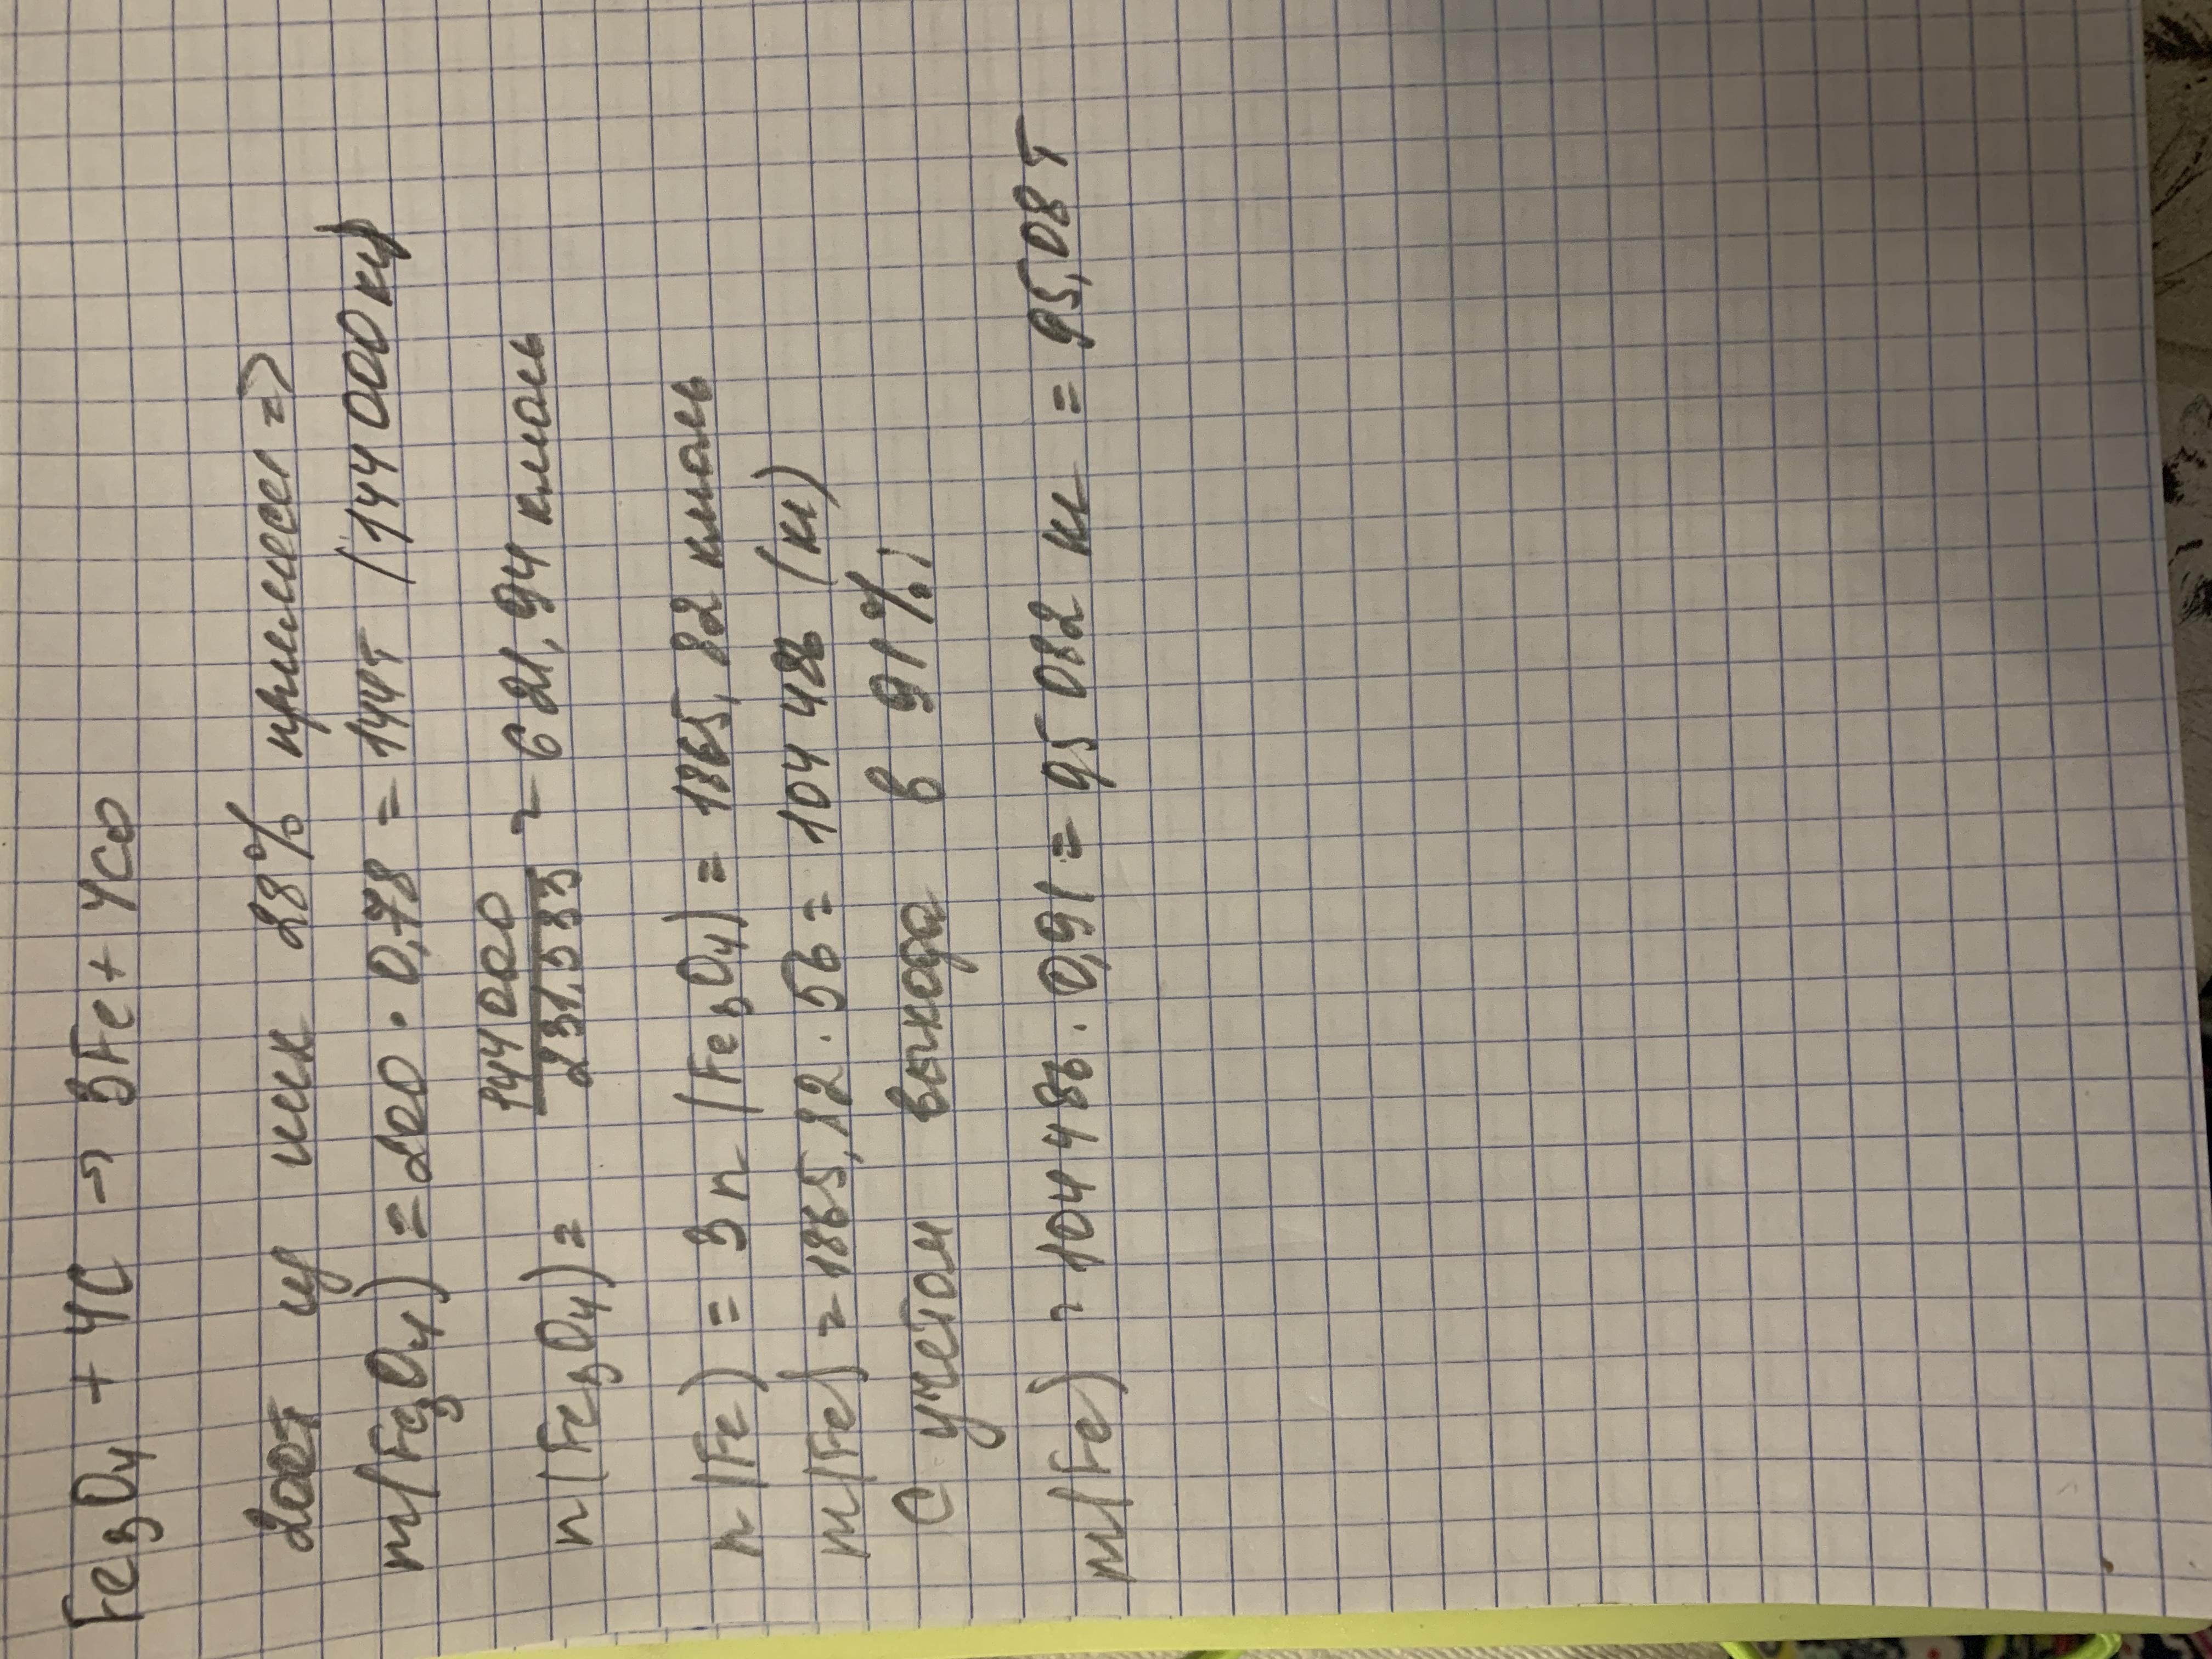 Fe3O4 + 4C → 3Fe + 4CO
200т из них 28% примеси =>
m(Fe3O4) = 200 · 0,78 = 144т (144 000 кг)
n(Fe3O4) = 144 000 / 231.533 ~ 621,94 кмоль
n(Fe) = 3n(Fe3O4) = 1865,82 кмоль
m(Fe) = 1865,82 · 56 = 104 486 (кг)
С учетом выхода в 91%:
m(Fe) ~ 104 486 · 0,91 = 95 082 кг = 95,08 т